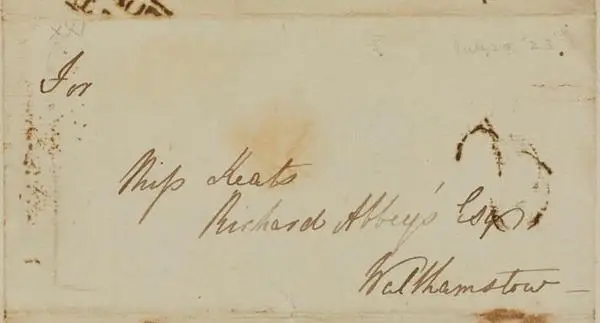 XXI
For
Miss Keats
Richard Abbey's Esqr.
Walthamstow —